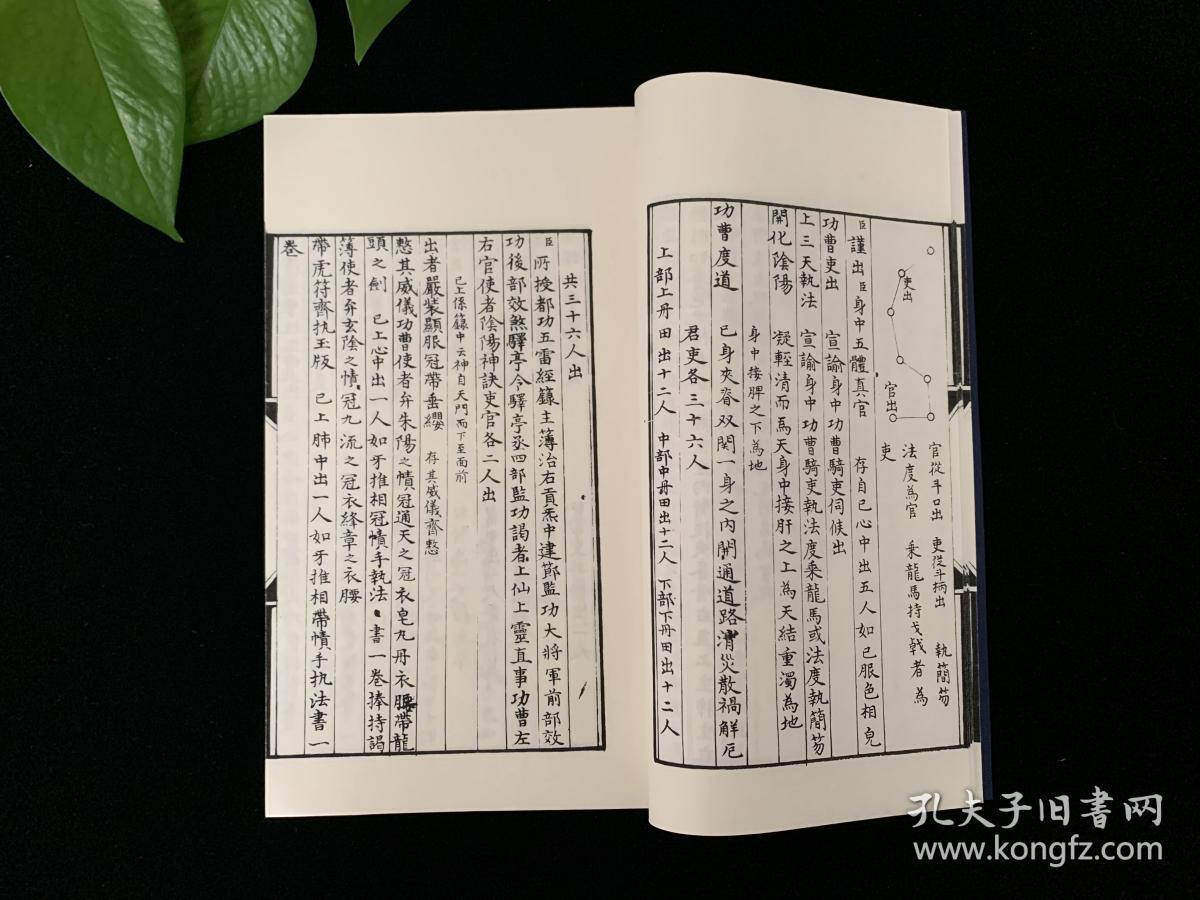 官從斗口出　吏從斗柄出　執簡笏
法度為官　乘龍馬持戈戟者為
吏
吏出
官出
臣謹出臣身中五體真官　存自己心中出五人如己服色相皃
功曹吏出　宣諭身中功曹騎吏伺候出
上三天執法　宣諭身中功曹騎吏執法度乘龍馬或法度執簡笏
開化陰陽　凝輕清而為天身中接肝之上為天結重濁為地
身中接脾之下為地
功曹度道　己身夾脊双関一身之內開通道路消災散禍解厄
君吏各三十六人
上部上丹田出十二人　中部中丹田出十二人　下部下丹田出十二人
共三十六人出
臣所授都功五雷經籙主簿治右貢炁中建節監功大將軍前部效
功後部效煞驛亭令驛亭丞四部監功謁者上仙上靈直事功曹左
右官使者陰陽神訣吏官各二人出
已上係籙中云神自天門而下至面前
出者嚴裝顯服冠帶垂纓　存其威儀齊整
整其威儀功曹使者弁朱陽之幘冠通天之冠衣皂九丹衣腰帶龍
頭之劍　已上心中出一人如牙推相冠幘手執法書一卷捧持謁
簿使者弁玄陰之幘冠九流之冠衣絳章之衣腰
帶虎符齊执玉版　已上肺中出一人如牙推相帶幘手执法書一
卷
孔夫子旧書网
www.kongfz.com